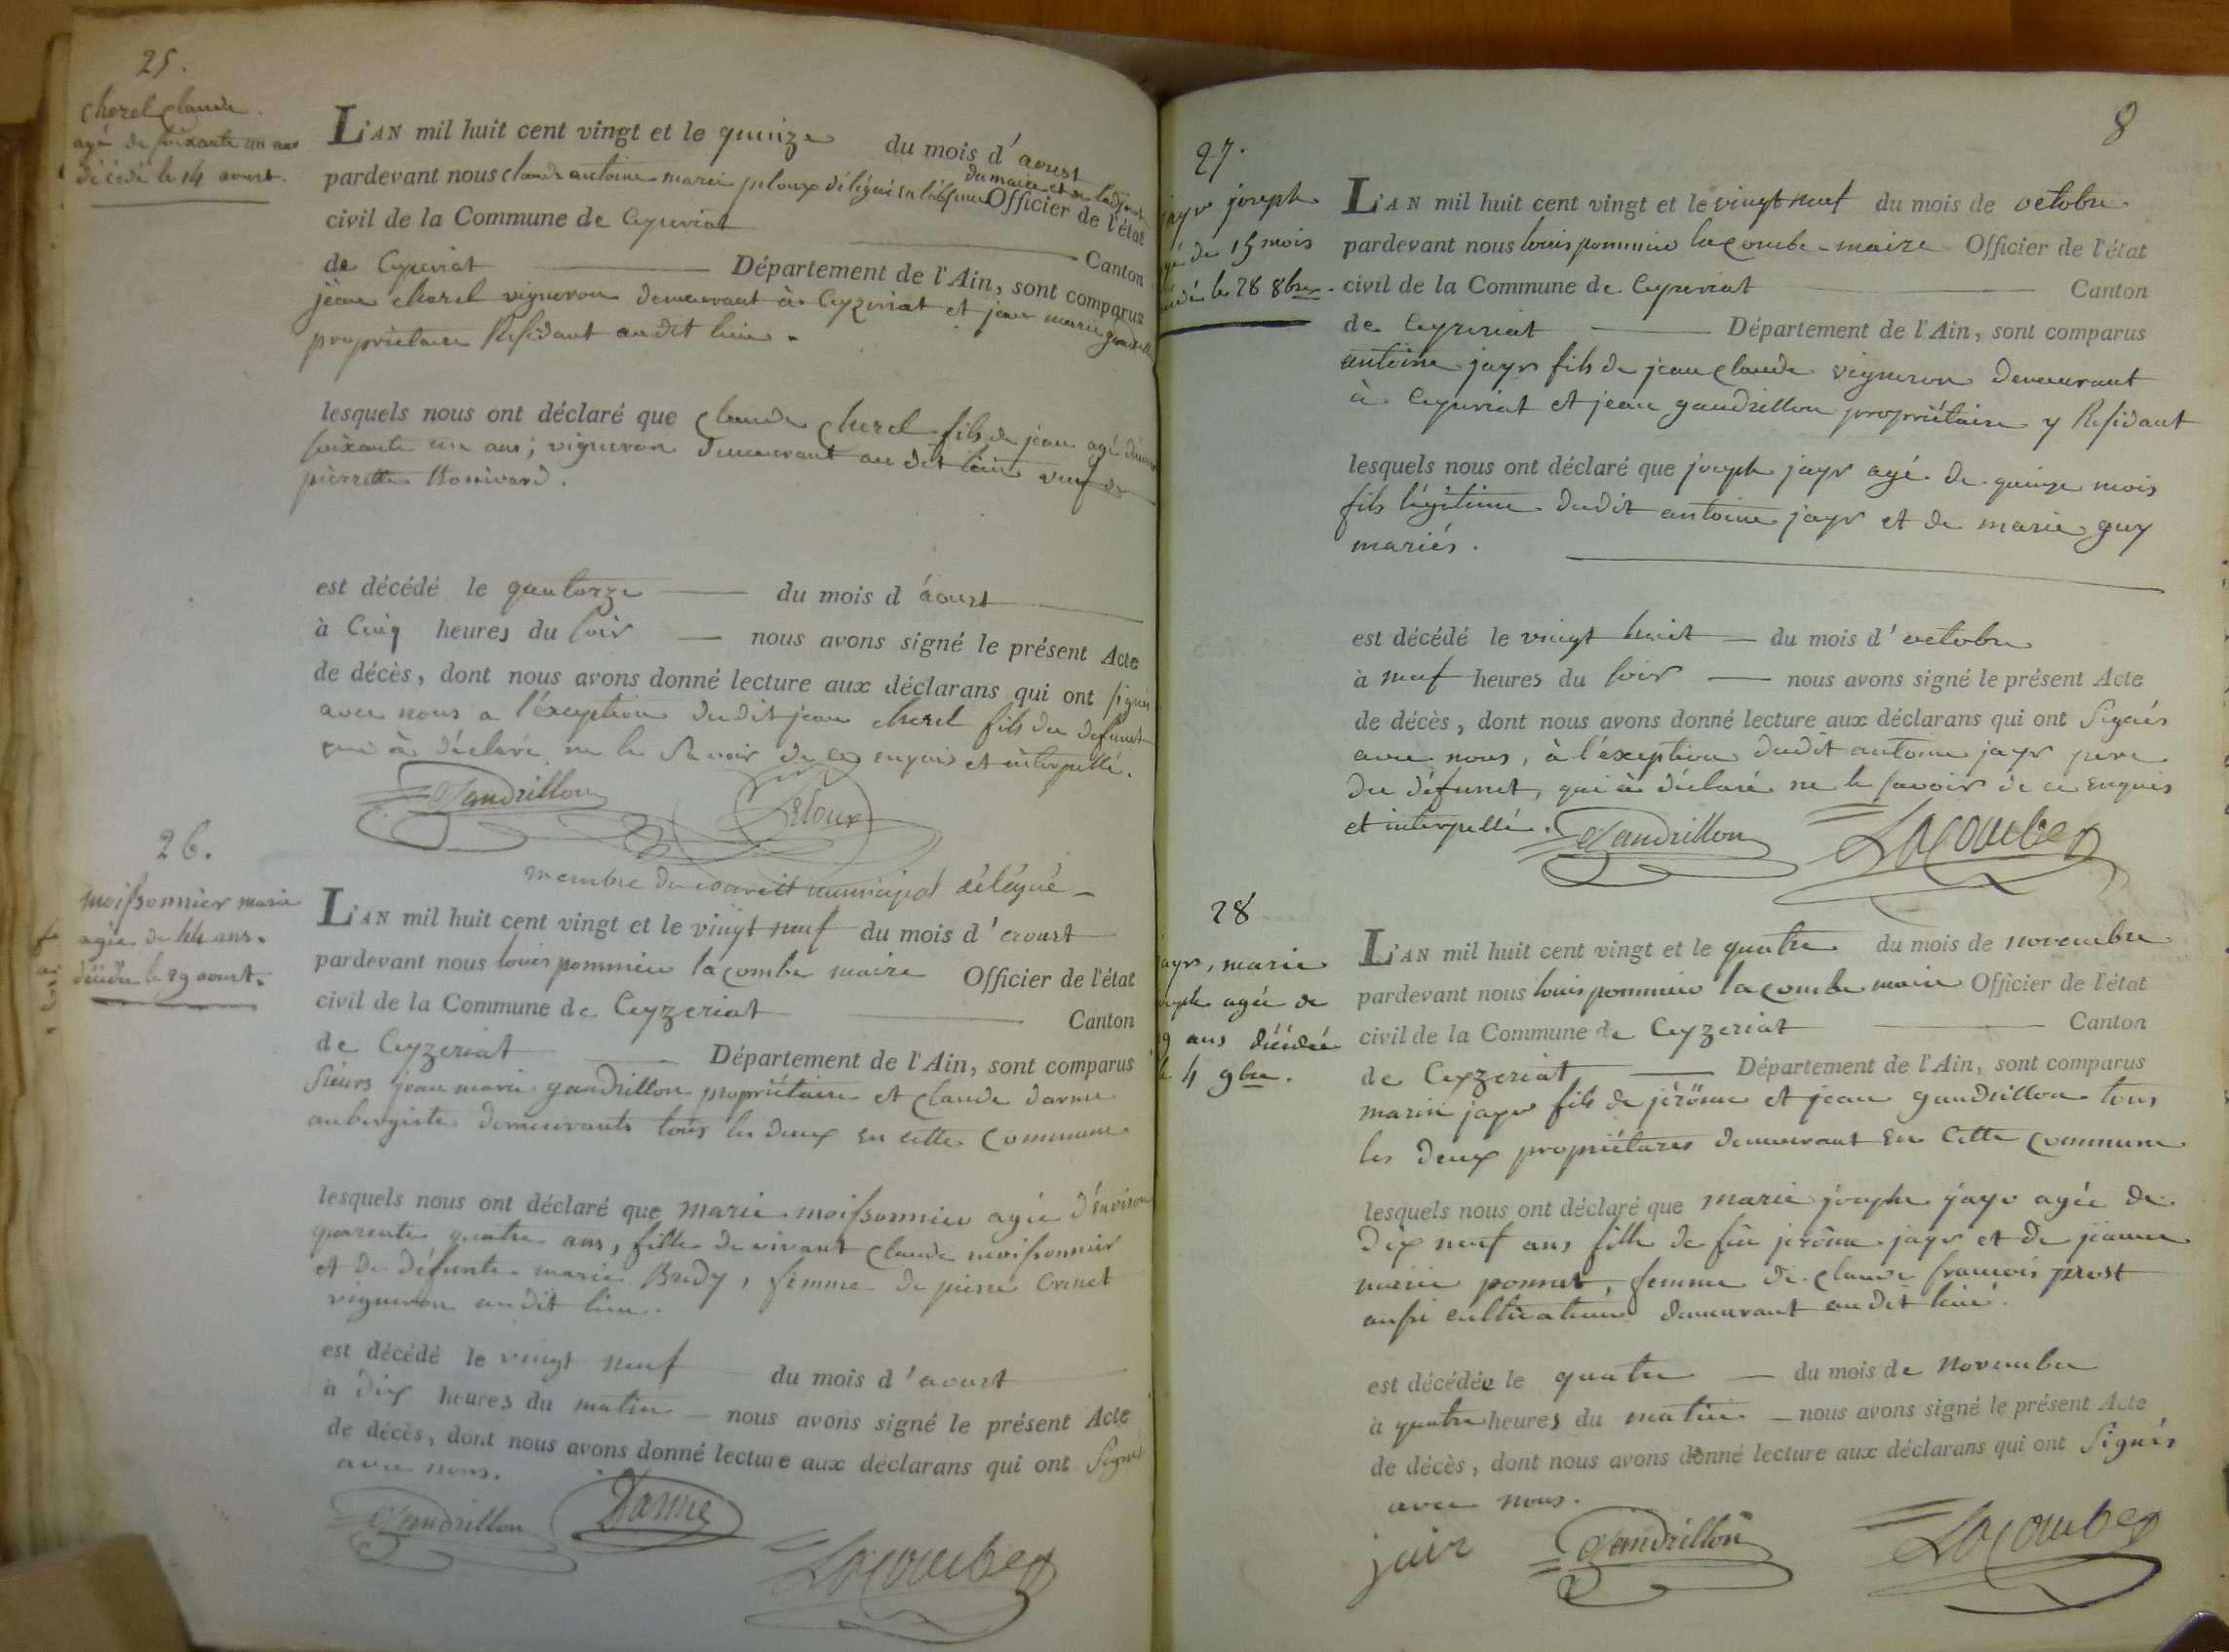 25.
Cherel Claude
agé de soixante un ans
décédé le 14 aoust.
L'AN mil huit cent vingt et le quinze du mois d'aoust
pardevant nous claude antoine marie peloux délégué en l'absence du maire et de l'adjoint Officier de l'état
civil de la Commune de Ceyzeriat Canton
de Ceyzeriat Département de l'Ain, sont comparus
jean cherel vigneron demeurant à Ceyzeriat et jean marie gandrillon
propriétaire Résidant audit lieu.
lesquels nous ont déclaré que Claude Cherel fils de jean agé d'environ
soixante un ans; vigneron demeurant au dit lieu veuf de
pierrette
est décédé le quatorze du mois d'aoust
à Cinq heures du soir nous avons signé le présent Acte
de décès, dont nous avons donné lecture aux déclarans qui ont signés
avec nous a l'éxception dudit jean cherel fils du defunct
qui à déclaré ne le savoir de ce enquis et interpellé.
Gandrillon Peloux
membre du conseil municipal délégué
26.
moissonnier marie
agée de 44 ans.
décédée le 29 aoust.
L'AN mil huit cent vingt et le vingt neuf du mois d'aoust
pardevant nous louis pommier lacombe maire Officier de l'état
civil de la Commune de Ceyzeriat Canton
de Ceyzeriat Département de l'Ain, sont comparus
Sieurs jean marie gandrillon propriétaire et claude darme
aubergiste demeurants tous les deux en cette Commune
lesquels nous ont déclaré que marie moissonnier agée d'environ
quarente quatre ans, fille de vivant Claude moissonnier
et de défunte marie Bredy, femme de pierre
vigneron au dit lieu.
est décédé le vingt neuf du mois d'aoust
à dix heures du matin nous avons signé le présent Acte
de décès, dont nous avons donné lecture aux déclarans qui ont Signés
avec nous.
Gandrillon Darme
Lacombe
8
27.
jayr joseph
agé de 15 mois
décédé le 28 8bre.
L'AN mil huit cent vingt et le vingt neuf du mois de octobre
pardevant nous louis pommier lacombe maire Officier de l'état
civil de la Commune de Ceyzeriat Canton
de Ceyzeriat Département de l'Ain, sont comparus
antoine jayr fils de jean claude vigneron demeurant
à Ceyzeriat et jean gandrillon propriétaire y Résidant
lesquels nous ont déclaré que joseph jayr agé de quinze mois
fils légitime dudit antoine jayr et de marie guy
mariés.
est décédé le vingt huit du mois d'octobre
à neuf heures du soir nous avons signé le présent Acte
de décès, dont nous avons donné lecture aux déclarans qui ont Signés
avec nous, à l'éxception dudit antoine jayr pere
du défunct, qui à déclaré ne le savoir de ce enquis
et interpellé. Gandrillon Lacombe
28
jayr, marie
joseph agée de
19 ans décédée
le 4 9bre.
L'AN mil huit cent vingt et le quatre du mois de novembre
pardevant nous louis pommier lacombe maire Officier de l'état
civil de la Commune de Ceyzeriat Canton
de Ceyzeriat Département de l'Ain, sont comparus
marin jayr fils de jérôme et jean gandrillon tous
les deux propriétaires demeurant en Cette Commune
lesquels nous ont déclaré que marie josephe jayr agée de
dix neuf ans fille de feu jerôme jayr et de jeanne
marie ponsat, femme de Claude francois prost
aussi cultivateur demeurant au dit lieu.
est décédée le quatre du mois de Novembre
à quatre heures du matin nous avons signé le présent Acte
de décès, dont nous avons donné lecture aux déclarans qui ont Signés
avec nous.
jair Gandrillon Lacombe